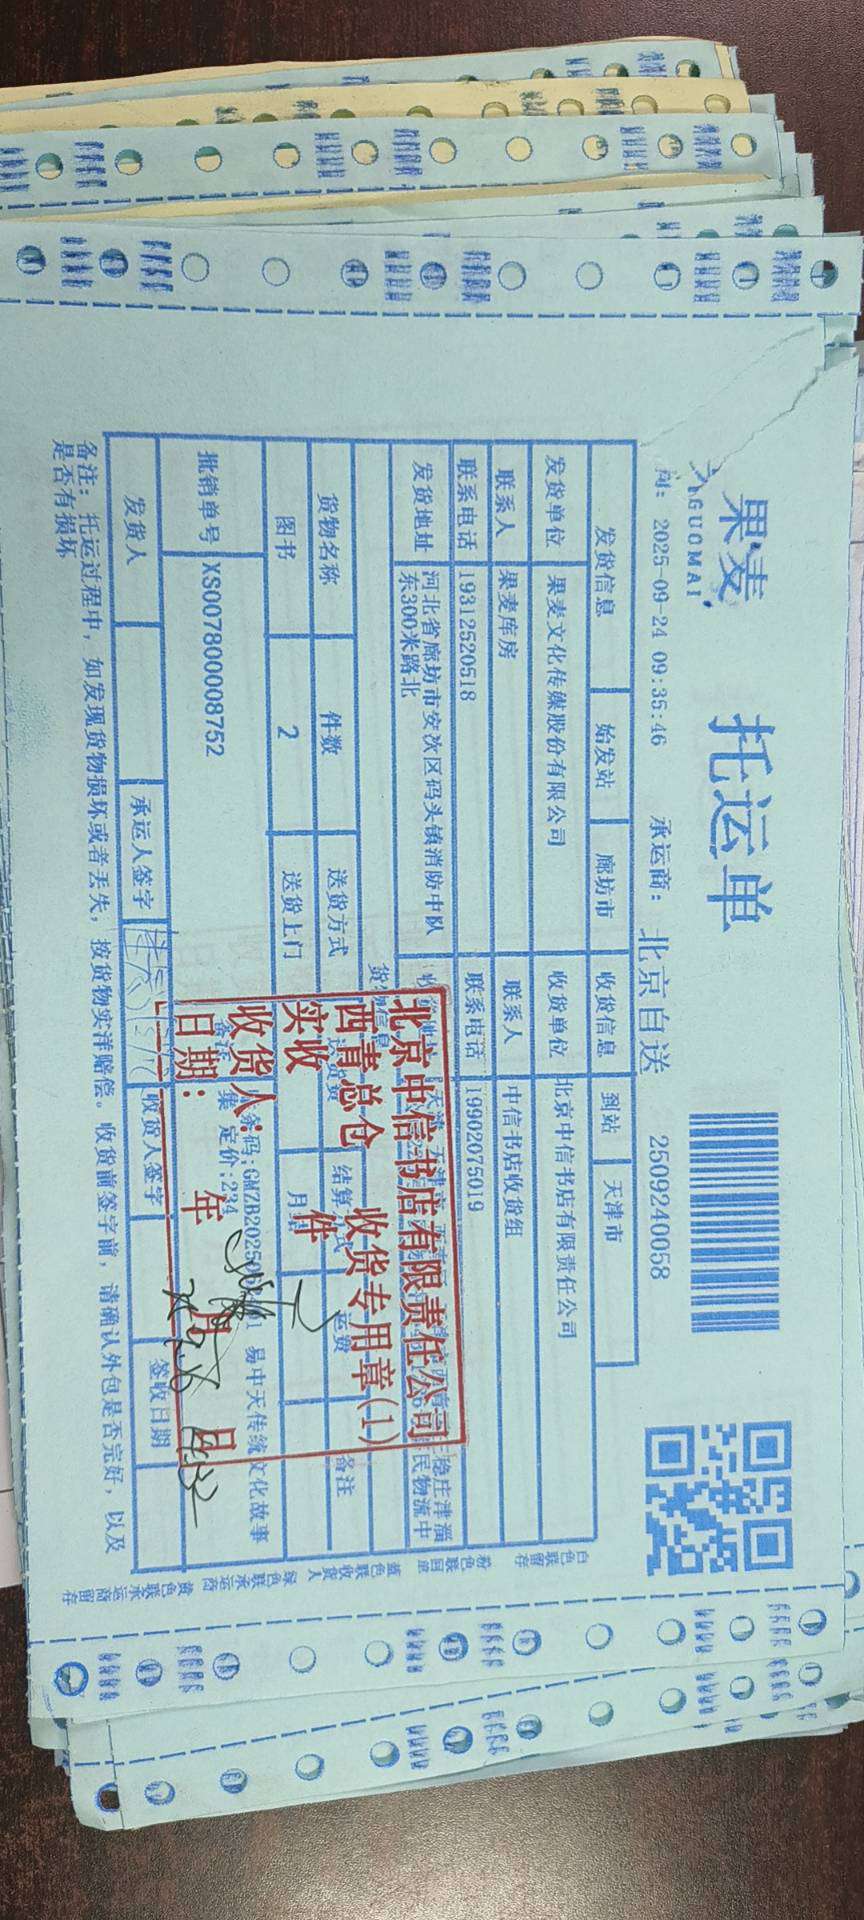 果麦
GUOMAI
托运单
2509240058
间: 2025-09-24 09:35:46 承运商: 北京自送
发货信息 始发站 廊坊市 收货信息 到站 天津市
发货单位 果麦文化传媒股份有限公司 收货单位 北京中信书店有限责任公司
联系人 果麦库房 联系人 中信书店收货组
联系电话 19312520518 联系电话 19902075019
发货地址 河北省廊坊市安次区码头镇消防中队
东300米路北
货物名称 件数 送货方式 结算方式 运费 备注
图书 2 送货上门
批销单号 XS007800008752
易中天传统文化故事
集 定价:234
发货人 承运人签字 收货人签字 签收日期
备注: 托运过程中, 如发现货物损坏或者丢失, 按货物实洋赔偿。收货前签字前, 请确认外包是否完好, 以及
是否有损坏
北京中信书店有限责任公司
西青总仓 收货专用章(1)
实收 件
收货人:
日期: 年 月 日
白色联留存 粉色联回底 蓝色联收货人 绿色联承运商 黄色联承运商留存